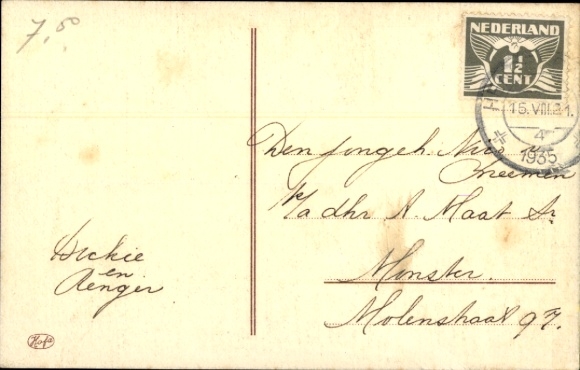 7,50
NEDERLAND
1½
CENT
H
15.VIII.21.
4
1935
Den jongeh. Nico
Vreemen
p/a dhr A. Maat Sr.
Monster.
Molenstraat 97.
Dickie
en
Renger